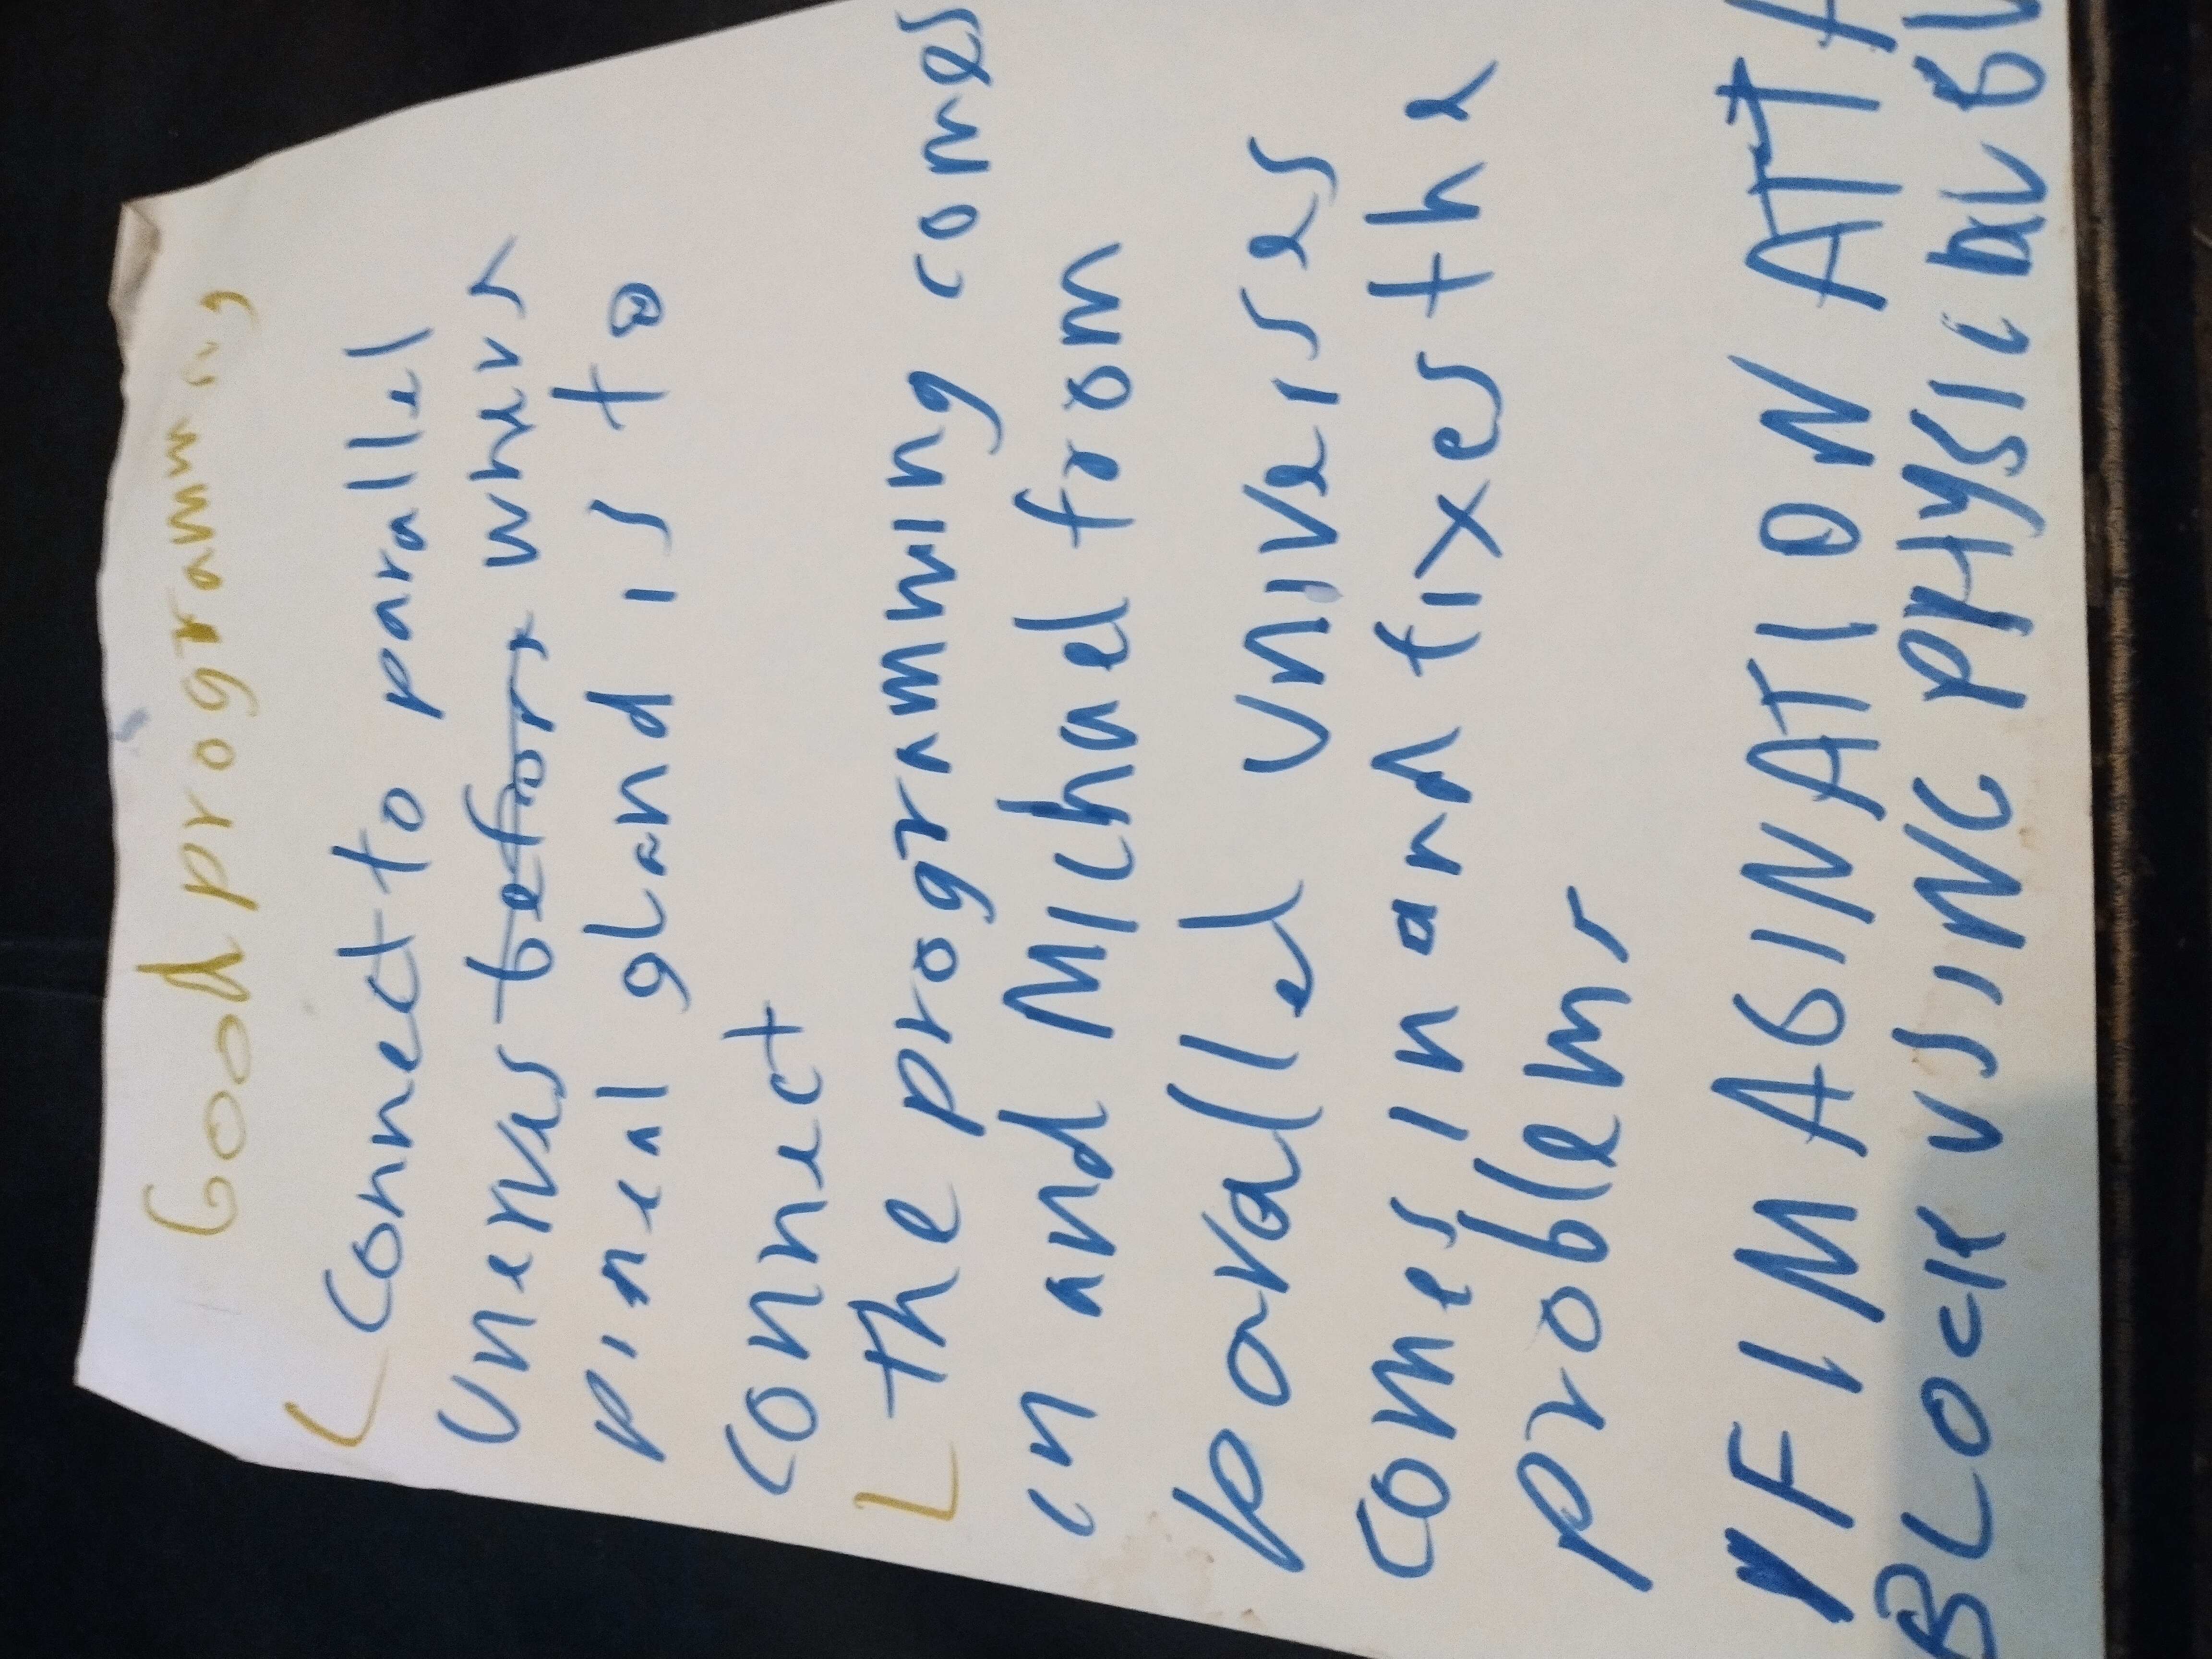 Good programming
Connect to parallel
Univers before where
pineal gland is to
connect
the programming comes
in and Michael from
parallel universes
comes in and fixes the
problems
IF IMAGINATION ATTA
BLOCK USING PHYSICAL BL